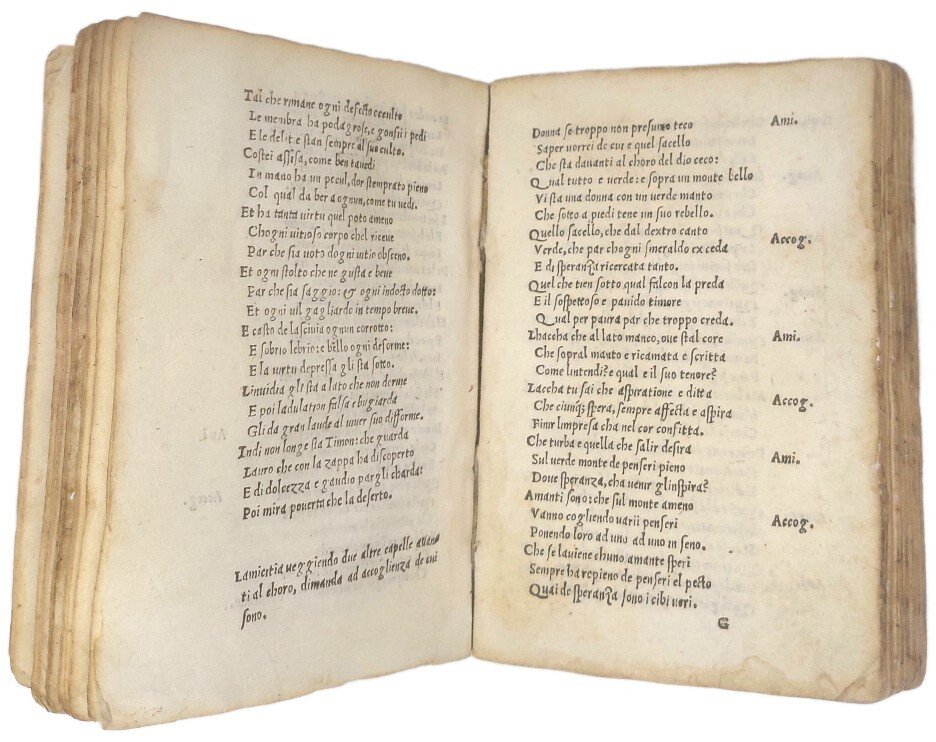 Tal che rimane ogni defecto occulto
Le membra ha podagrose, e gonfii i pedi
E le delitie stan sempre al suo culto.
Costei assisa, come ben tavedi
In mano ha un pecul, dor stemprato pieno
Col qual da ber a ognun, come tu vedi.
Et ha tanta virtu quel poto ameno
Chogni vitioso corpo chel riceve
Par che sia voto dogni vitio obsceno.
Et ogni stolto che ne gusta e beve
Par che sia saggio: & ogni indocto dotto:
Et ogni vil gagliardo in tempo breve.
E casto de lascivia ognun corrotto:
E sobrio lebrio: e bello ogni deforme:
E la virtu depressa gli sta sotto.
Linvidia gli sta a lato che non dorme
E poi ladulation falsa e bugiarda
Gli da gran laude al viver suo difforme.
Indi non longe sta Timon: che guarda
Lauro che con la zappa ha discoperto
E di dolcezza e gaudio par gli charda:
Poi mira poverta che la deserto.
Lamicitia veggiendo due altre capelle avan
ti al choro, dimanda ad accoglienza de cui
sono.
Donna se troppo non presumo teco Ami.
Saper vorrei de cui e quel sacello
Che sta davanti al choro del dio ceco:
Qual tutto e verde: e sopra un monte bello
Vi sta una donna con un verde manto
Che sotto a piedi tene un suo rebello.
Quello sacello, che dal dextro canto Accog.
Verde, che par chogni smeraldo exceda
E di speranza ricercata tanto.
Quel che tien sotto qual falcon la preda
E il sospettoso e pavido timore
Qual per paura par che troppo creda.
Lhaccha che al lato manco, ove stal core Ami.
Che sopral manto e ricamata e scritta
Come lintendi? e qual e il suo tenore?
Laccha tu sai che aspiratione e ditta Accog.
Che ciunqȝ spera, sempre affecta e aspira
Finir limpresa cha nel cor confitta.
Che turba e quella che salir desira Ami.
Sul verde monte de penseri pieno
Dove speranza, cha venir glinspira?
Amanti sono: che sul monte ameno Accog.
Vanno cogliendo varii penseri
Ponendo loro ad uno ad uno in seno.
Che se laviene chuno amante speri
Sempre ha repieno de penseri el pecto
Quai de speranza sono i cibi veri.
G